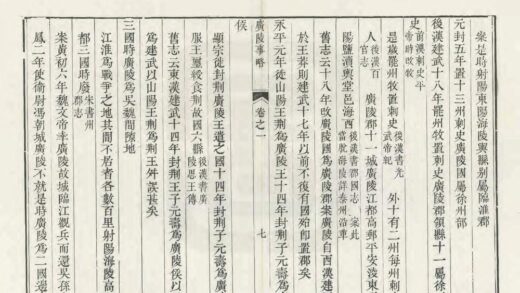 粲是時射陽東陽海陵輿縣別屬臨淮郡
元封五年置十三州刺史廣陵國屬徐州部
後漢建武十八年罷州牧置刺史廣陵郡領縣十一屬徐
史前漢刺史平帝時改牧
是歲罷州牧置刺史後漢書光武帝紀 外十有二州每州刺
人後漢百官志 廣陵郡十一城廣陵江都高郵平安淩東
陽鹽瀆輿堂邑海西後漢書郡國志案此當就海陵詳泰州沿革
舊志云十八年改廣陵郡案廣陵自西漢建
於王莽則建武十七年以前不復有國殆卽置郡矣
永平元年徙山陽王荆爲廣陵王十四年封荆子元壽爲廣陵
廣陵事略 卷之一 七
侯
顯宗徙封廣陵王遣之國十四年封荆子元壽爲廣
服王璽綬食荆故國六縣後漢書廣陵思王傳
舊志云東漢建武十四年封荆王子元壽爲廣陵侯以
爲建武以山陽王荆爲荆王舛誤甚矣
三國時廣陵爲吳魏間隙地
江淮爲戰爭之地其間不居者各數百里射陽海陵高
都三國時廢宋書州郡志
案黃初六年魏文帝幸廣陵故城臨江觀兵而還吳孫
鳳二年使衛尉馮朝城廣陵不就是時廣陵爲二國邊